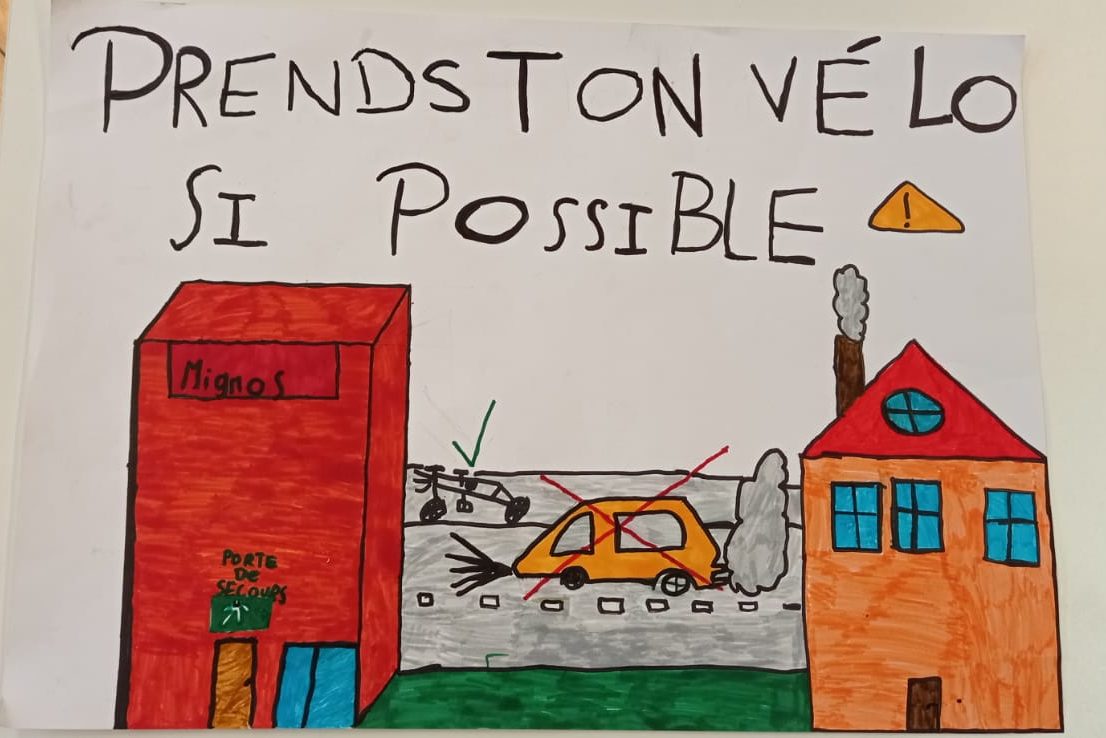 PRENDS TON VÉLO
SI POSSIBLE
!
Mignos
PORTE
DE
SECOURS